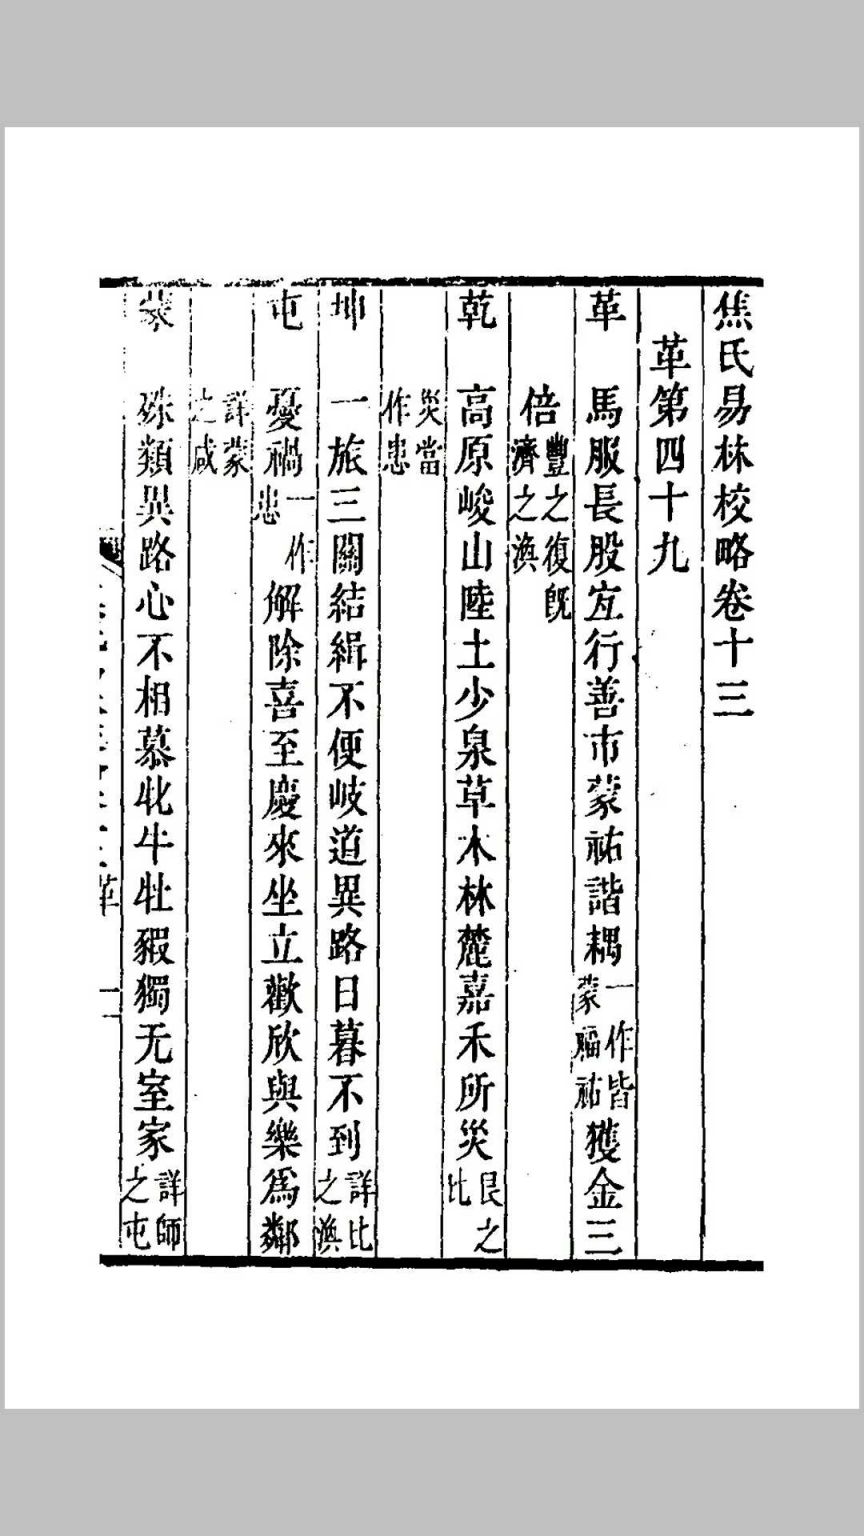 焦氏易林校略卷十三
革第四十九
革　馬服長股宐行善市蒙祐諧耦一作皆蒙福祐獲金三
倍豐之復旣濟之渙
乾　高原峻山陸土少泉草木林麓嘉禾所災艮之比
災當作患
坤　一旅三關結緝不便岐道異路日暮不到詳比之渙
屯　憂禍一作患解除喜至慶來坐立歡欣與樂爲鄰
詳蒙之咸
蒙　殊類異路心不相慕牝牛牡豭獨无室家詳師之屯
革　一